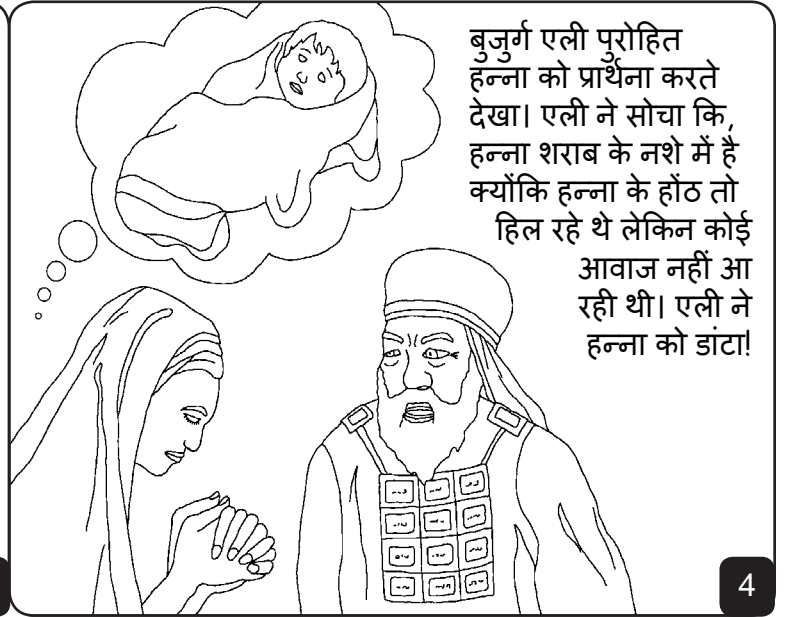 बुजुर्ग एली पुरोहित
हन्ना को प्रार्थना करते
देखा। एली ने सोचा कि,
हन्ना शराब के नशे में है
क्योंकि हन्ना के होंठ तो
हिल रहे थे लेकिन कोई
आवाज नहीं आ
रही थी। एली ने
हन्ना को डांटा!
4